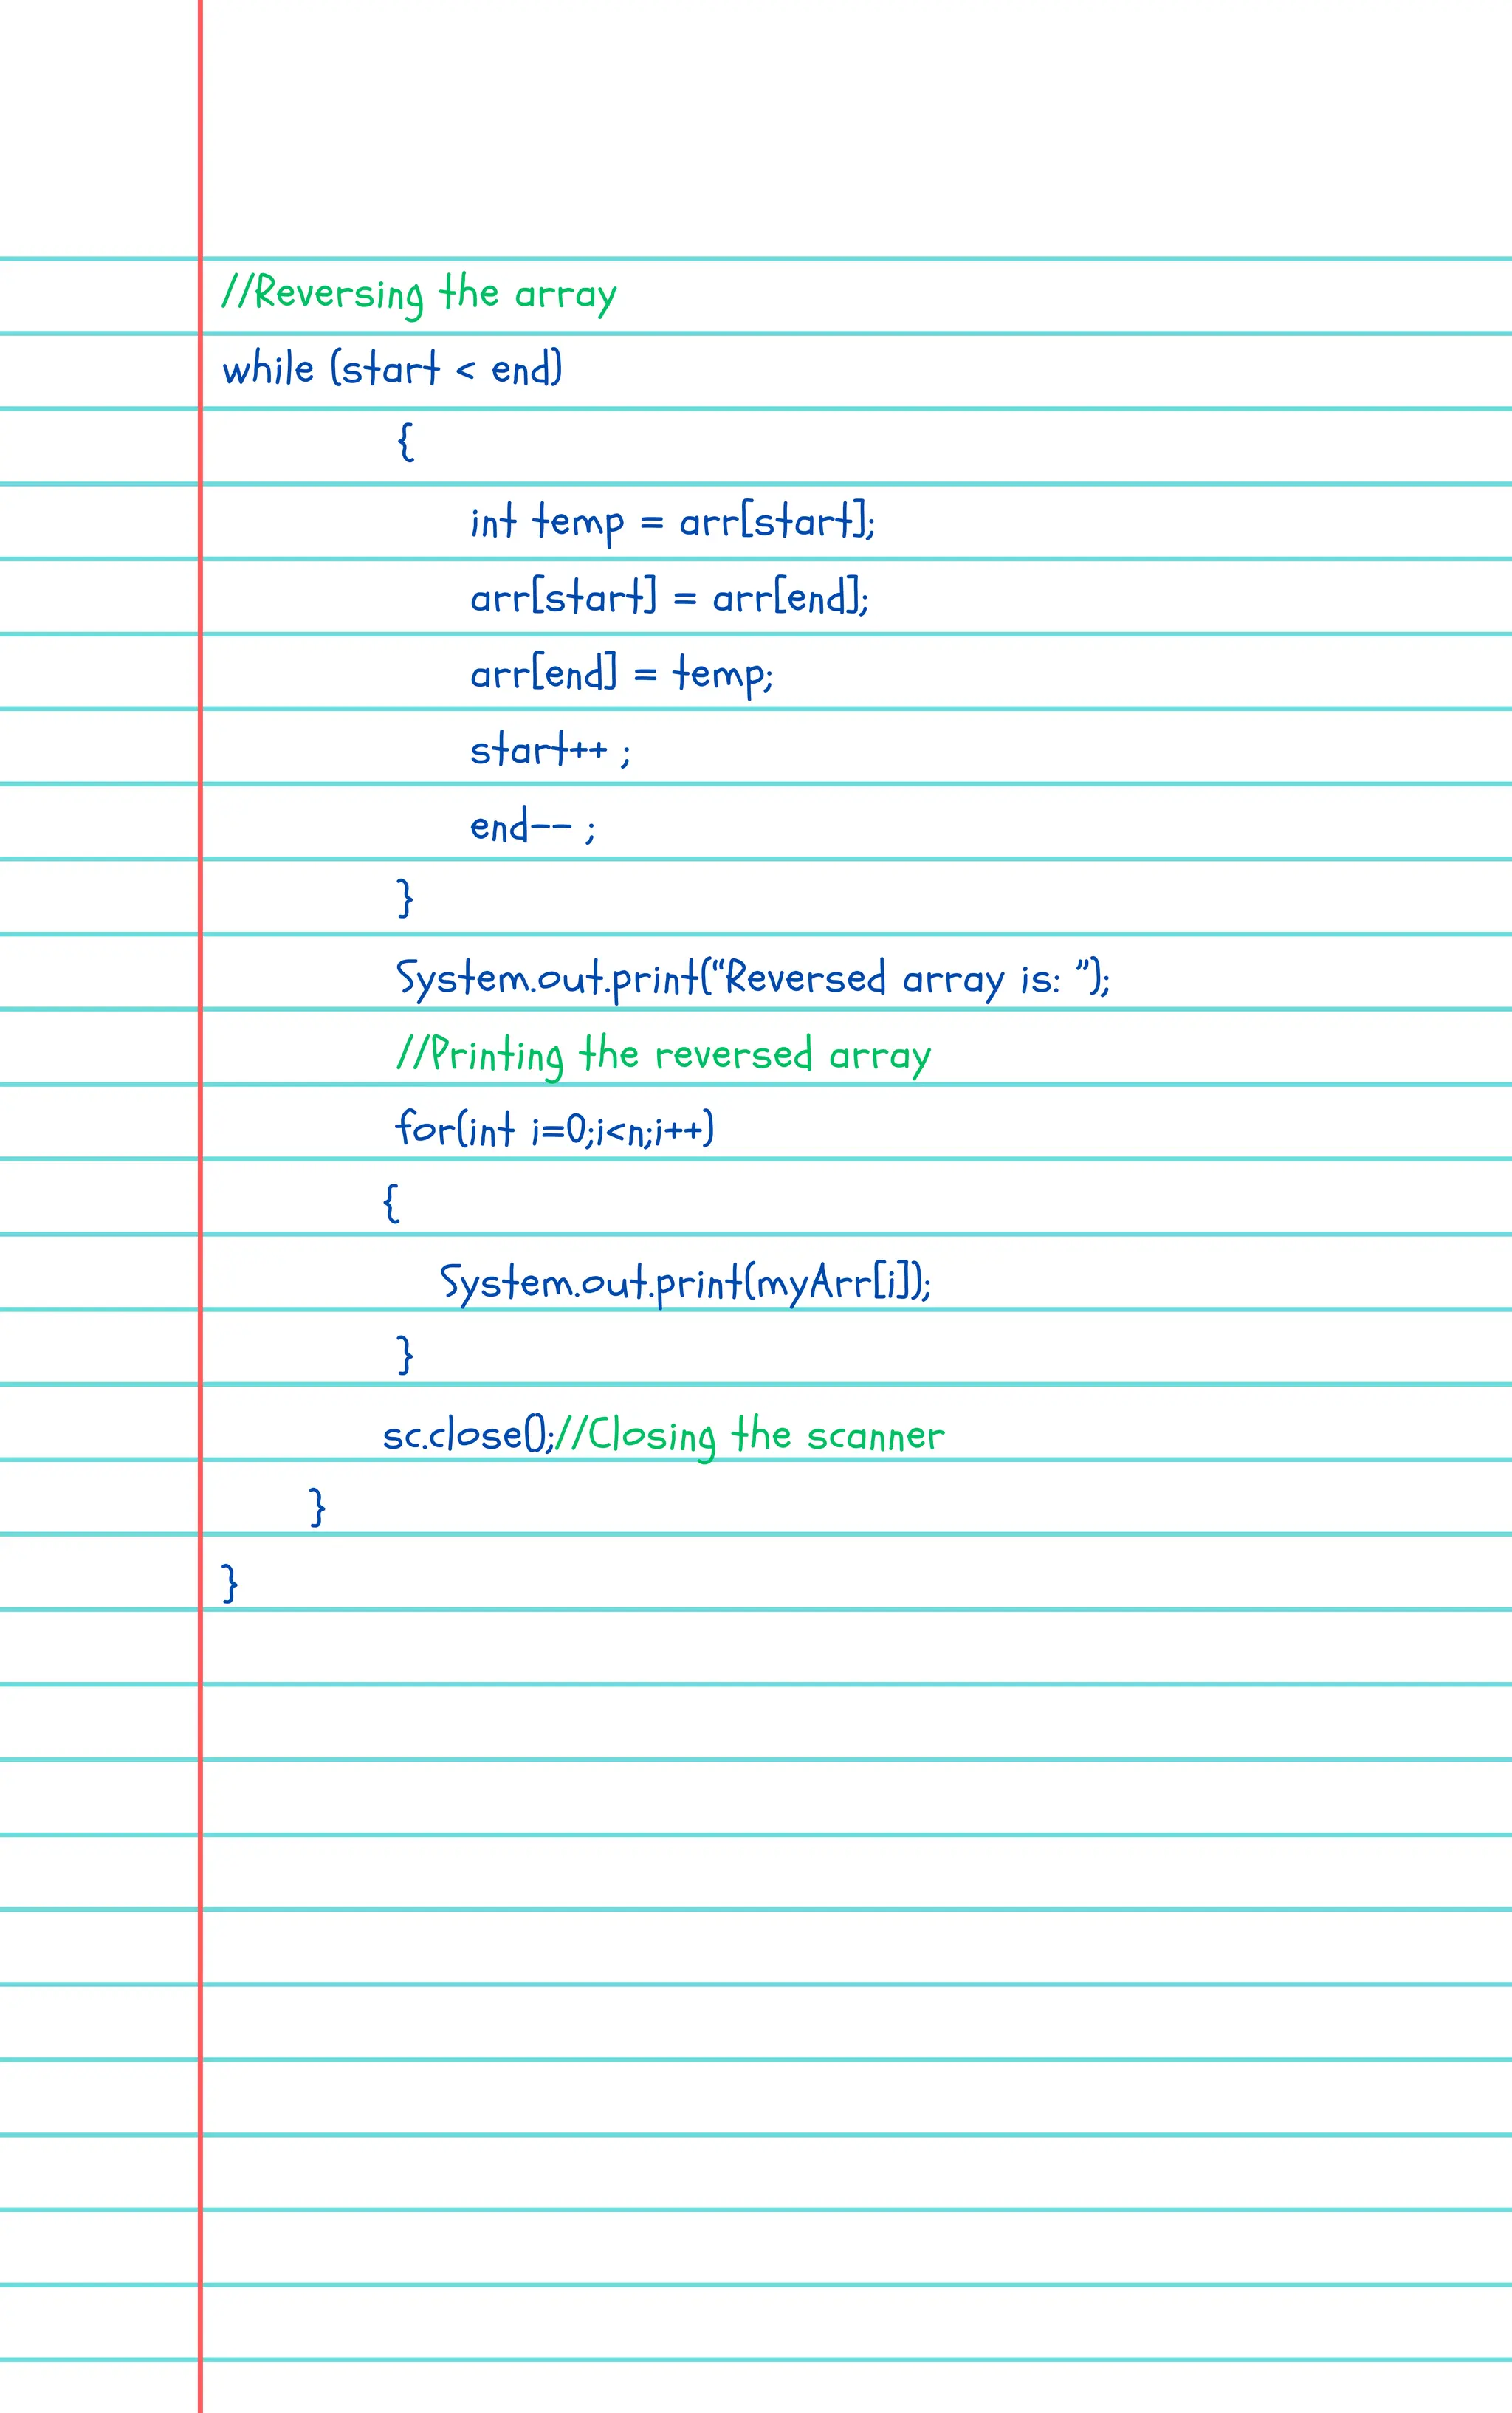 //Reversing the array
while (start < end)
{
int temp = arr[start];
arr[start] = arr[end];
arr[end] = temp;
start++ ;
end-- ;
}
System.out.print(“Reversed array is: ”);
//Printing the reversed array
for(int i=0;i<n;i++)
{
System.out.print(myArr[i]);
}
sc.close();//Closing the scanner
}
}